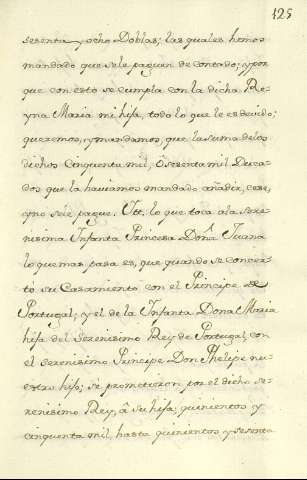 125
sesenta y ocho Doblas; las quales hemos
mandado que se le paguen de contado; y por
que con esto se cumpla con la dicha Re-
yna Maria mi hija, todo lo que le es devido;
queremos, y mandamos, que la suma de los
dichos Cinquenta mil, ó sesenta mil Duca-
dos que la haviamos mandado añadir, cese,
y no se le pague. Ytt. lo que toca a la Sere-
nisima Infanta Princesa Doña Juana
lo que mas pasa es, que quando se concer-
tó su Casamiento con el Principe de
Portugal; y el de la Infanta Dona Maria
hija del Serenisimo Rey de Portugal, con
el serenisimo Principe Don Phelipe nu-
estro hijo; se prometieron por el dicho se-
renisimo Rey, â su hija, quinientos y
cinquenta mil, hasta quinientos y sesenta